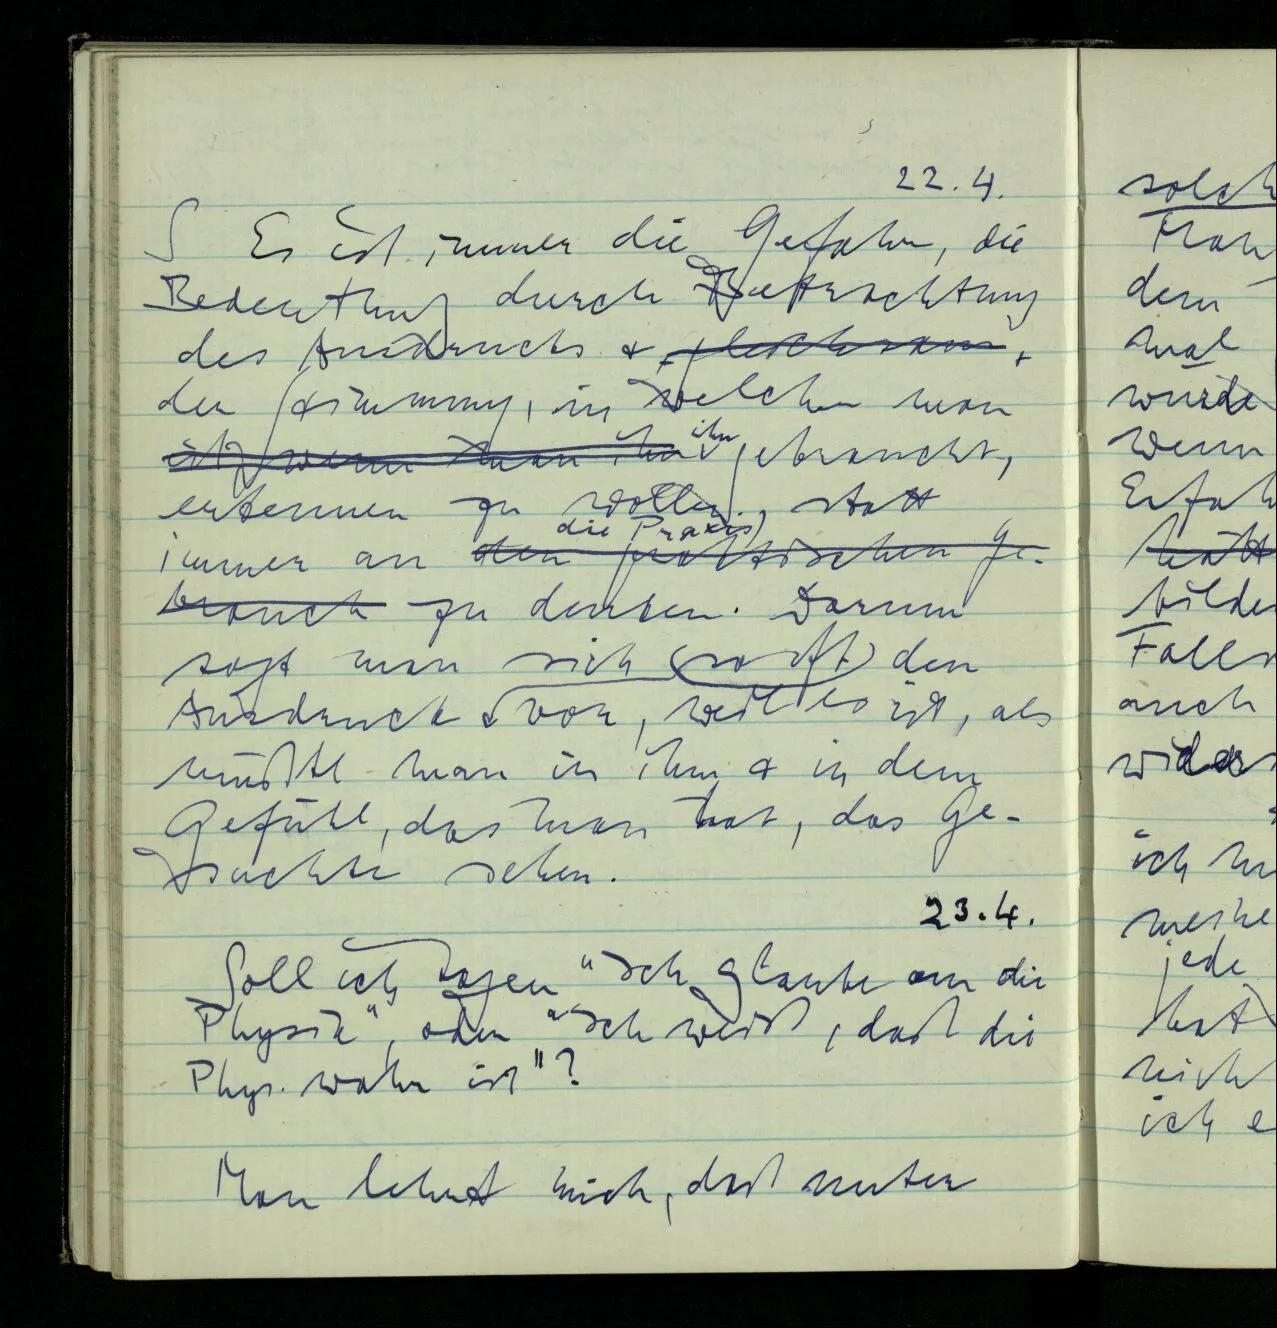 22.4.
S Es ist immer die Gefahr, die
Bedeutung durch Betrachtung
des Ausdrucks & gleichsam
der Stimmung, in welcher man
ist, wenn man ihn ihn gebraucht,
erkennen zu wollen, statt
die Praxis
immer an den praktischen Ge-
brauch zu denken. Darum
sagt man sich (so oft) den
Ausdruck vor, weil es ist, als
müßte man in ihm & in dem
Gefühl, das man hat, das Ge-
suchte sehen.
23.4.
Soll ich sagen "Ich glaube an die
Physik", oder "Ich weiß, daß die
Phys. wahr ist"?
Man lehrt mich, daß unter
solch
Man
dem
mal
würde
wenn
Erfah
hätt
bilde
Falls
auch
wider
ich
jede
hat
nich
ich e